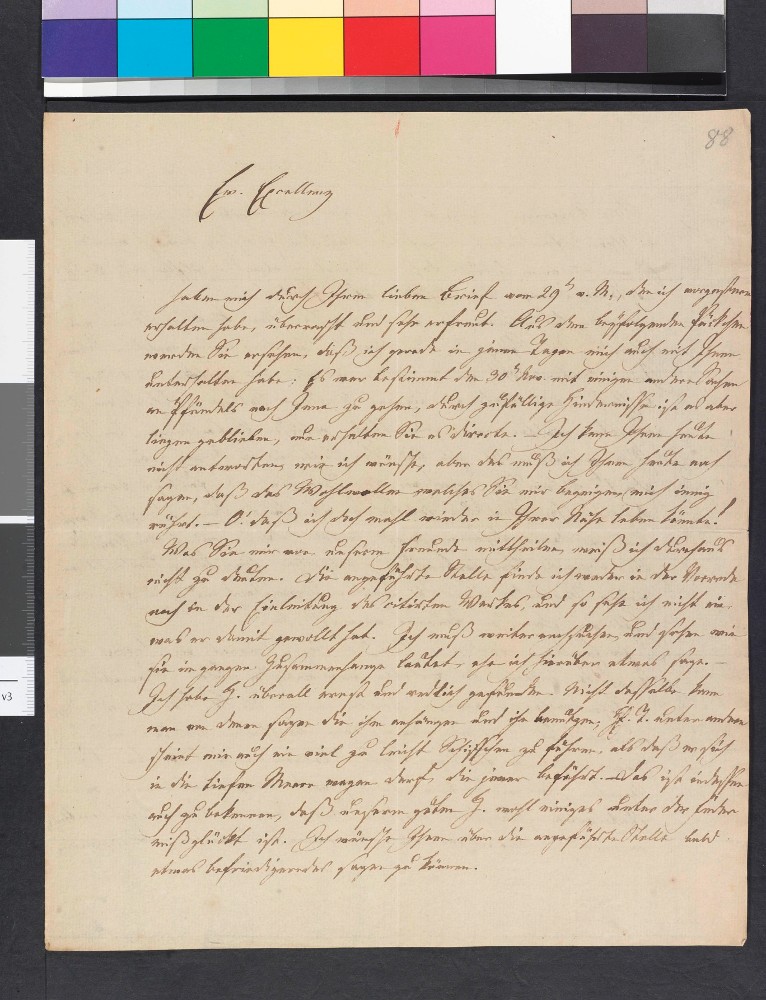 88
Ew. Excellenz
haben mich durch Ihren lieben Brief vom 29t v. M., den ich vorgestern
erhalten habe, überrascht und sehr erfreut. Aus dem beyfolgenden Päckchen
werden Sie ersehen, daß ich gerade in jenen Tagen mich auch mit Ihnen
unterhalten habe: Es war bestimmt den 30t Nov. mit einigen andern Sachen
an Pfündels nach Jena zu gehen, durch zufällige Hindernisse ist es aber
liegen geblieben, nun erhalten Sie es directe. – Ich kann Ihnen heute
nicht antworten, wie ich wünsche, aber das muß ich Ihnen heute noch
sagen, daß das Wohlwollen welches Sie mir bezeigen, mich innig
rührt. – O! daß ich doch mahl wieder in Ihrer Nähe leben könnte!
Was Sie mir von unserm Freunde mittheilen, weiß ich durchaus
nicht zu deuten. Die angeführte Stelle finde ich weder in der Vorrede
noch in der Einleitung des citirten Werkes, und so sehe ich nicht ein,
was er damit gewollt hat. Ich muß weiter nachsuchen und sehen wie
sie im ganzen Zusammenhange lautet, ehe ich hierüber etwas sage. –
Ich habe H. überall ernst und redlich gefunden. Nicht dasselbe kann
man von denen sagen die ihm anhängen und ihn benutzen; unter andern
scheint mir auch ein viel zu leicht Schiffchen zu führen, als daß er sich
in die tiefen Meere wagen darf, die jener befährt. – Das ist indessen
auch zu bekennen, daß unserm guten H. wohl einiges unter der Feder
mißglückt ist. Ich wünsche Ihnen über die angeführte Stelle bald
etwas befriedigendes sagen zu können.
v3